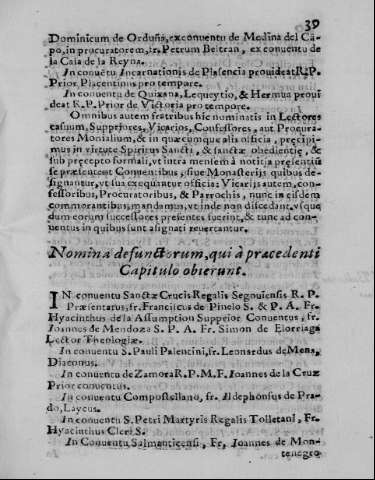 39
Dominicum de Orduña, ex conuentu de Medina del Cã-
po, in procuratorem, fr, Petrum Beltran, ex conuentu de
la Casa de la Reyna.
In conuẽtu Incarnationis de Plasencia prouideat R. P.
Prior Placentinus pro tempore.
In conuentu de Quixana, Lequeytio, & Hermua proui
deat R. P. Prior de Victoria pro tempore.
Omnibus autem fratribus hic nominatis in Lectores
casuum, Suppriores, Vicarios, Confessores, aut Procura-
tores Monialium, & in quæcumque alia officia, præcipi-
mus in virtute Spiritus Sancti, & sanctæ obedientiæ,
sub præcepto formali, vt intra mensem à notitia præsentiũ
se præsentent Conuentibus, siue Monasterijs quibus de-
signantur, vt sua exequantur officia: Vicarijs autem, con-
fessoribus, Procuratoribus, & Parrochis, nunc in eisdem
commorantibus, mandamus, vt inde non discedant, vsque
dum eorum successores presentes fuerint, & tunc ad con-
uentus in quibus sunt asignati reuertantur.
Nomina defunctorum, qui à præcedenti
Capitulo obierunt.
IN conuentu Sanctæ Crucis Regalis Segouiensis R. P.
Præsentatus, fr. Franciscus de Pinelo S. & P. A. Fr.
Hyacinthus de la Assumption Supprior Conuentus, fr.
Ioannes de Mendoza S. P. A. Fr. Simon de Elorriaga
Lector Theologiæ.
In conuentu S. Pauli Palentini, fr. Leonardus de Mena,
Diaconus.
In conuentu de Zamora R. P. M. F. Ioannes de la Cruz
Prior conuentus.
In conuentu Compostellano, fr. Ildephonsus de Pra-
do, Laycus.
In conuentu S. Petri Martyris Regalis Tolletani, Fr.
Hyacinthus Cleri S.
In Conuentu Salmanticensi, Fr, Ioannes de Mon-
tenegro